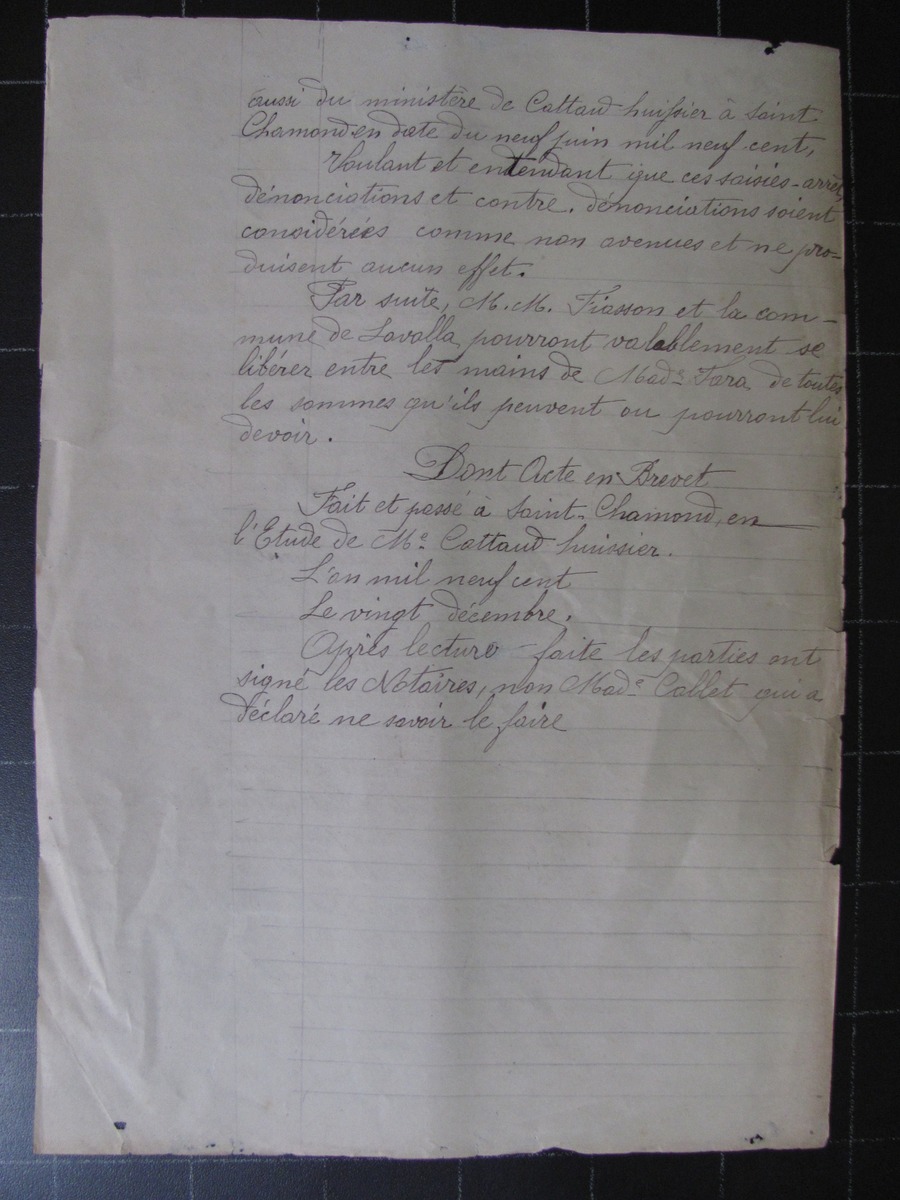 aussi du ministère de Cattaud huissier à Saint
Chamond en date du neuf juin mil neuf cent,
Voulant et entendant que ces saisies-arrêt,
dénonciations et contre-dénonciations soient
considérées comme non avenues et ne pro-
duisent aucun effet.
Par suite, M.M. Fiasson et la com-
mune de Lavalla, pourront valablement se
libérer entre les mains de Made Fara de toutes
les sommes qu'ils peuvent ou pourront lui
devoir.
Dont Acte en Brevet
Fait et passé à Saint-Chamond, en
l'Etude de Me Cattaud huissier.
L'an mil neuf cent
Le vingt décembre.
Après lecture faite les parties ont
signé les Notaires, non Made Collet qui a
déclaré ne savoir le faire